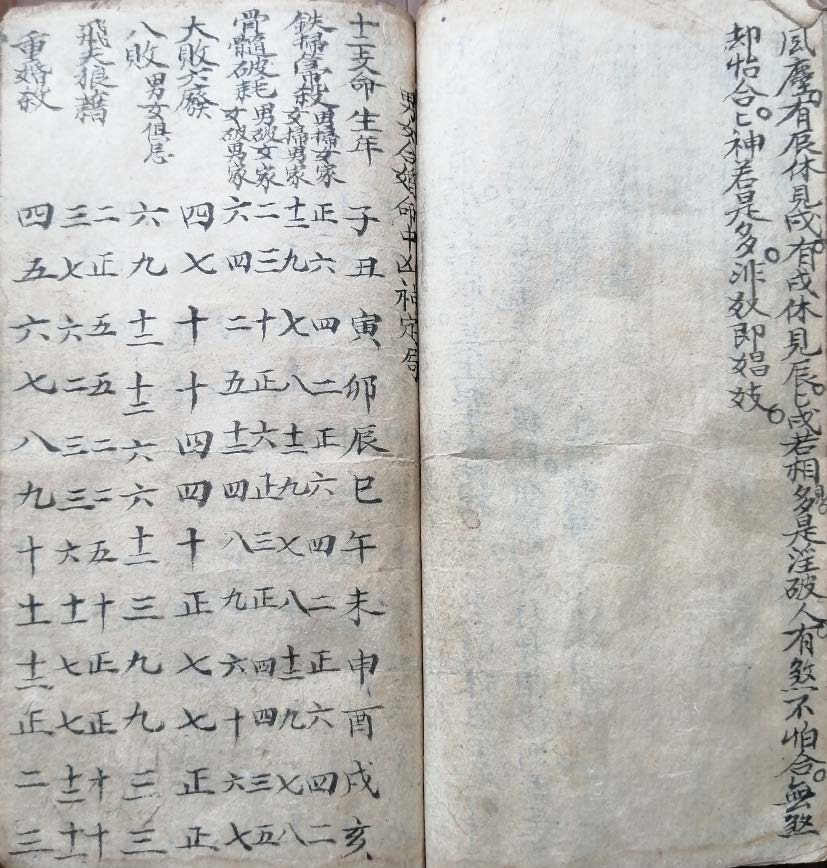 風塵有辰休見戌有戌休見辰匕戌若相見多是淫破人有煞不怕合無煞
却怕合匕神若是多非奴即娼妓
男女合婚命中凶神定局
十二支命生年 子丑寅卯辰巳午未申酉戌亥
鉄掃帚殺 男掃女家 正六四二正六四二正六四二
女掃男家 十二九七八十二九七八十二九七八
骨髓破耗 男破女家 二三十正六正三正四四三五
女破男家 六四二五十二四八九六十六七
大敗六廢 四七十十四四十正七七正正
八敗 男女俱忌 六九十二十二六六十二三九九三三
飛天狼藉 二正五五二二五十正正十十
三七六二三三六十一七七十二十一
重婚殺 四五六七八九十十一十二正二三